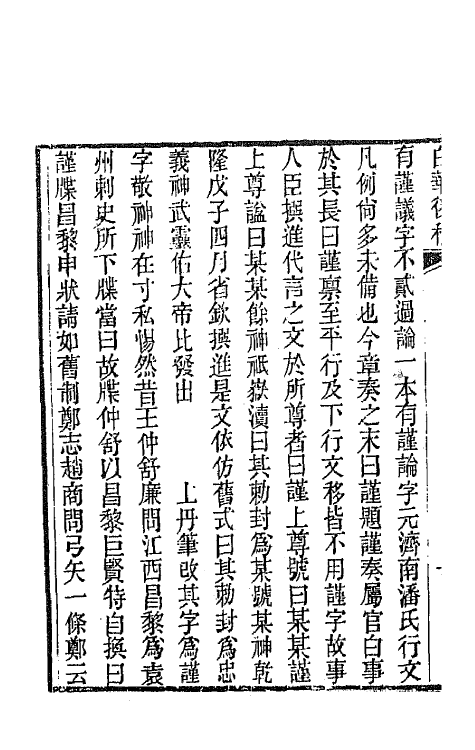 白華後稿
有謹議字不貳過論一本有謹論字元濟南潘氏行文
凡例尚多未備也今章奏之末曰謹題謹奏屬官白事
於其長曰謹稟至平行及下行文移皆不用謹字故事
人臣撰進代言之文於所尊者曰謹上尊號曰某某謹
上尊諡曰某某餘神祇嶽瀆曰其勅封爲某號某神乾
隆戊子四月省欽撰進是文依仿舊式曰其勅封爲忠
義神武靈佑大帝比發出 上丹筆改其字爲謹
字敬神神在寸私惕然昔王仲舒廉問江西昌黎爲袁
州刺史所下牒當曰故牒仲舒以昌黎巨賢特自換曰
謹牒昌黎申狀請如舊制鄭志趙商問弓矢一條鄭云